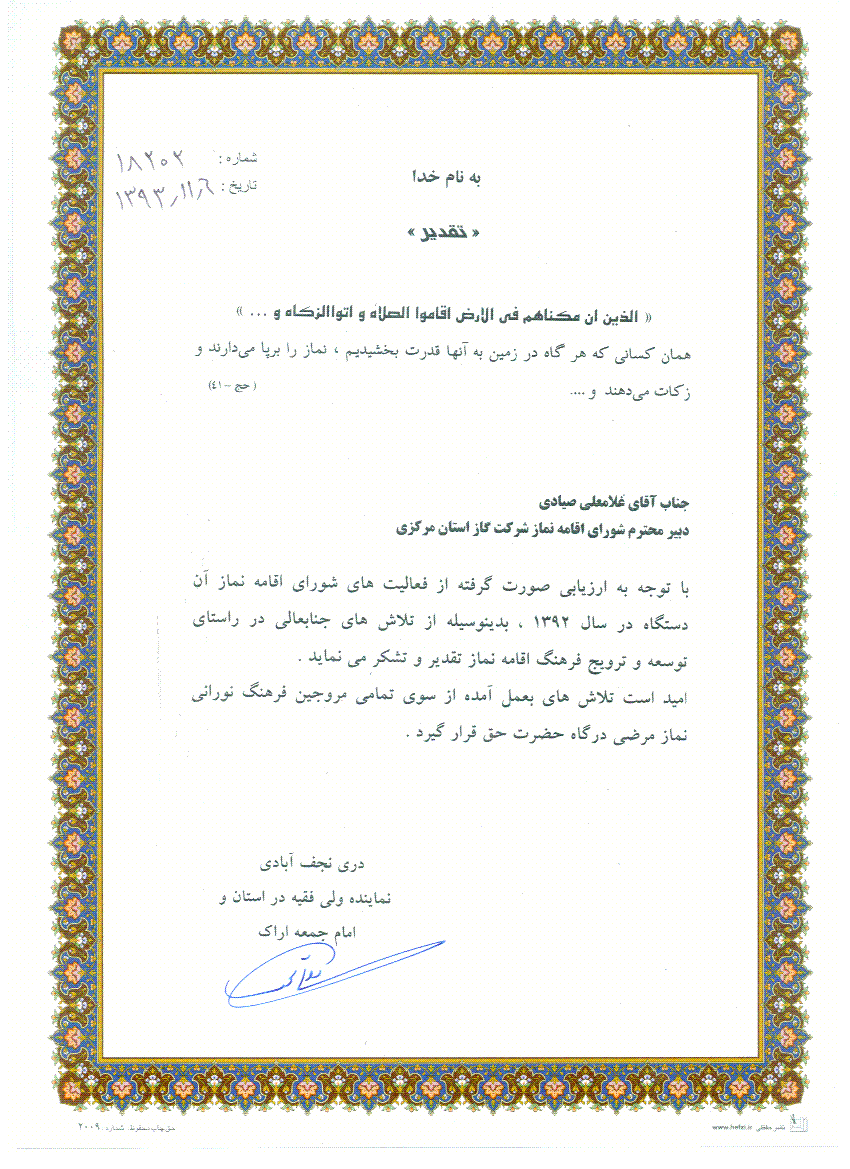 شماره : ۱۸۲۰۲
تاریخ : ۱۳۹۳/۱۱/۶
به نام خدا
« تقدیر »
« الذین ان مکناهم فی الارض اقاموا الصلاه و اتواالزکاه و ... »
همان کسانی که هر گاه در زمین به آنها قدرت بخشیدیم ، نماز را برپا می‌دارند و
زکات می‌دهند و .... (حج -٤١)
جناب آقای غلامعلی صیادی
دبیر محترم شورای اقامه نماز شرکت گاز استان مرکزی
با توجه به ارزیابی صورت گرفته از فعالیت های شورای اقامه نماز آن
دستگاه در سال ۱۳۹۲ ، بدینوسیله از تلاش های جنابعالی در راستای
توسعه و ترویج فرهنگ اقامه نماز تقدیر و تشکر می نماید .
امید است تلاش های بعمل آمده از سوی تمامی مروجین فرهنگ نورانی
نماز مرضی درگاه حضرت حق قرار گیرد .
دری نجف آبادی
نماینده ولی فقیه در استان و
امام جمعه اراک
نشر حفظی www.hefzi.ir
حق چاپ محفوظ. شماره : ۲۰۰۹